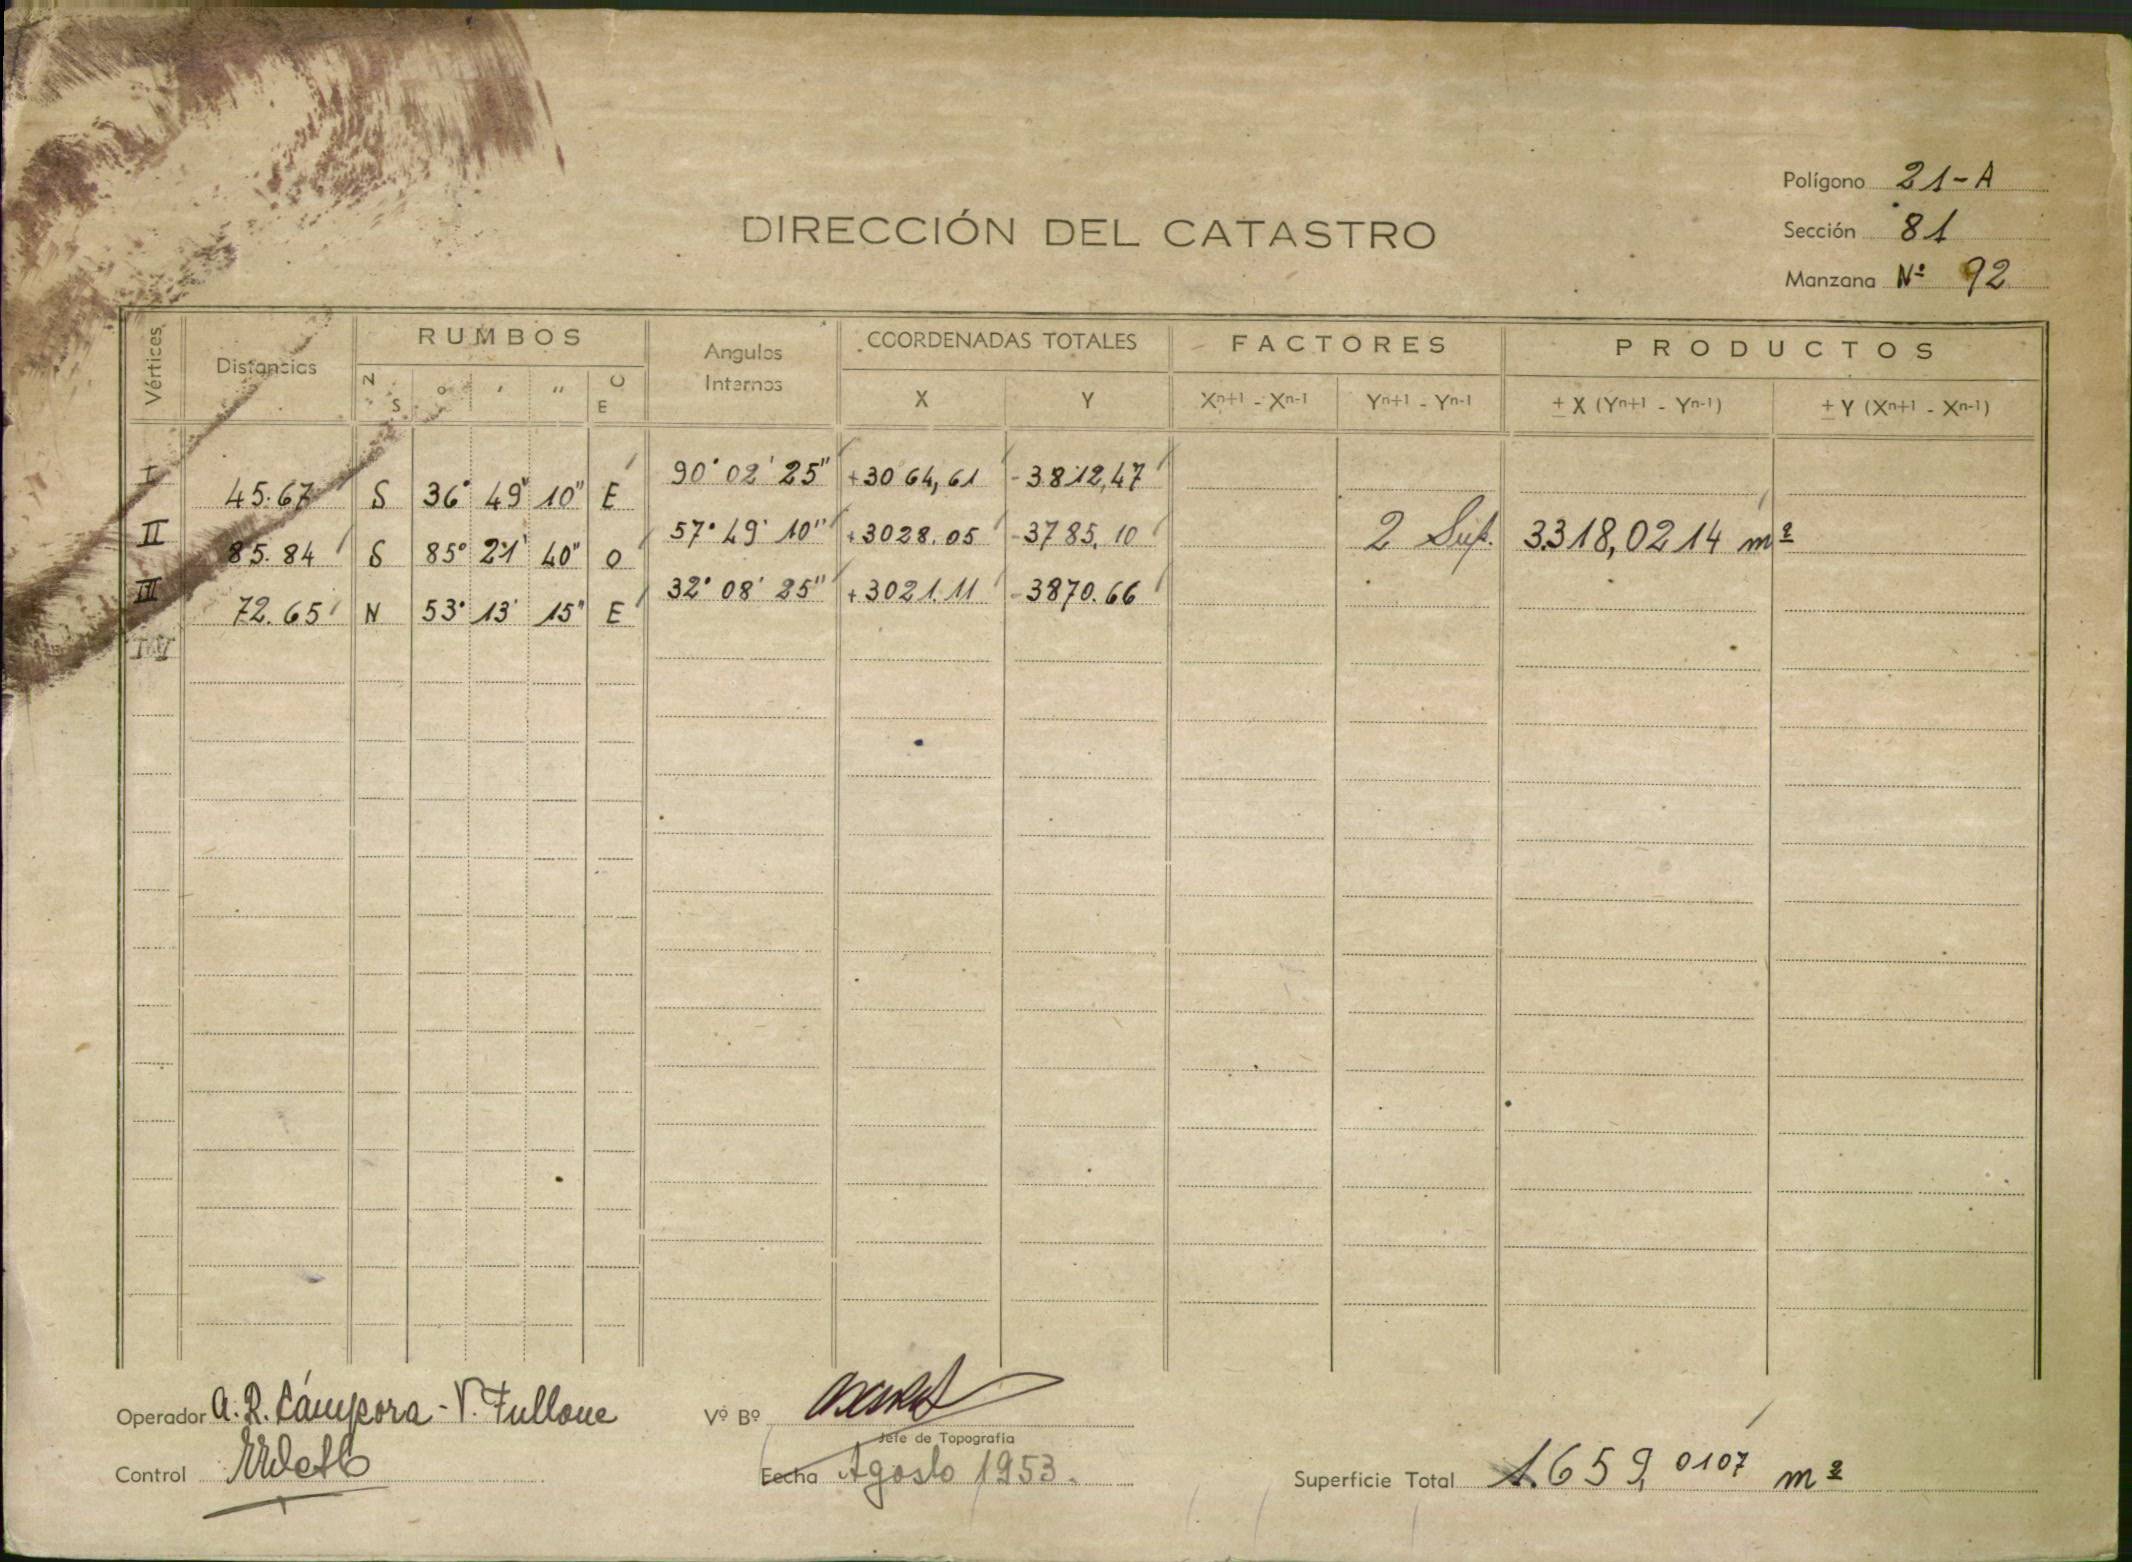 Polígono 21-A
DIRECCIÓN DEL CATASTRO
Sección 81
Manzana Nº 92
Vértices
Distancias
RUMBOS
N S
° ' "
O E
Angulos Internos
COORDENADAS TOTALES
X Y
FACTORES
Xn+1 - Xn-1 Yn+1 - Yn-1
PRODUCTOS
± X (Yn+1 - Yn-1) ± Y (Xn+1 - Xn-1)
I 90° 02' 25" +3064,61 -3812,47
45.67 S 36° 49' 10" E
II 57° 49' 10" +3028.05 -3785,10 2 Sup. 3.318,0214 m²
85.84 S 85° 21' 40" O
III 32° 08' 25" +3021.11 -3870.66
72.65 N 53° 13' 15" E
Operador A. R. Cámpora - V. Fullone
Vº Bº
Jefe de Topografía
Control
Fecha Agosto 1953.
Superficie Total 1.659,0107 m²